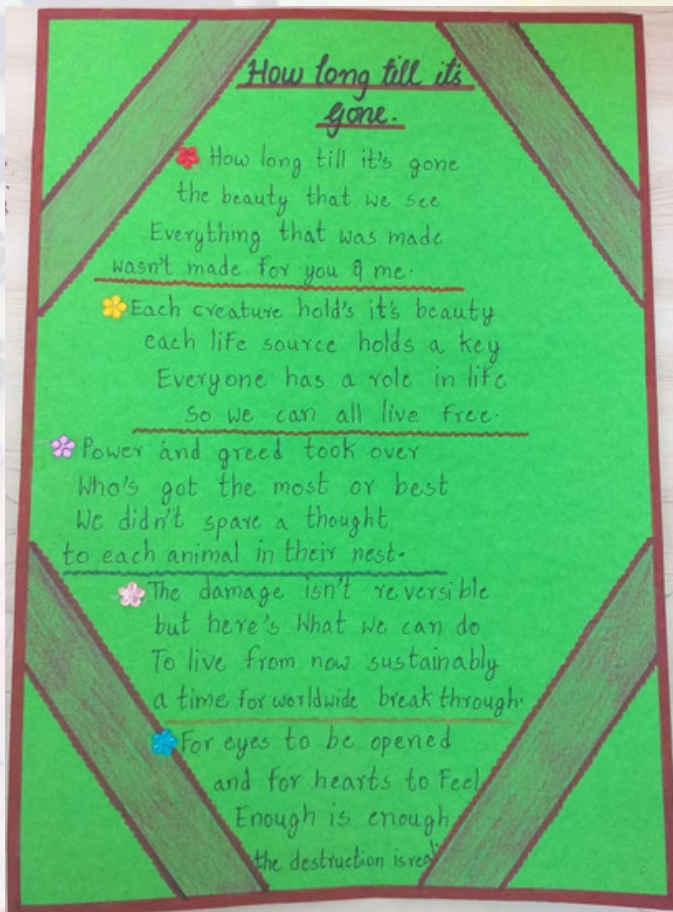 How long till it's
gone.
How long till it's gone
the beauty that we see
Everything that was made
wasn't made for you & me.
Each creature hold's it's beauty
each life source holds a key
Everyone has a role in life
so we can all live free.
Power and greed took over
Who's got the most or best
We didn't spare a thought
to each animal in their nest.
The damage isn't reversible
but here's What we can do
To live from now sustainably
a time for worldwide break through.
For eyes to be opened
and for hearts to Feel
Enough is enough
the destruction is real